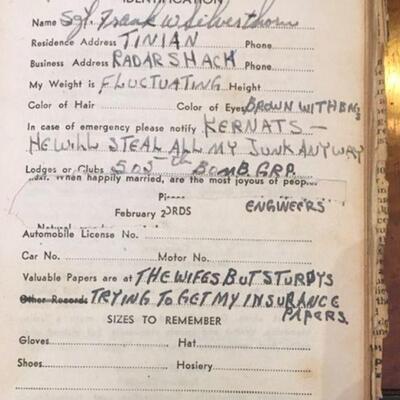 IDENTIFICATION
Name Sgt. Frank W Silverthorn
Residence Address TINIAN Phone
Business Address RADAR SHACK Phone
My Weight is FLUCTUATING Height
Color of Hair Color of Eyes BROWN WITH BAGS
In case of emergency please notify KERNATS —
HE WILL STEAL ALL MY JUNK ANYWAY
Lodges or Clubs 505th BOMB. GRP.
When happily married, are the most joyous of people.
ENGINEERS
February 2 ORDS
Automobile License No.
Car No. Motor No.
Valuable Papers are at THE WIFES BUT STURDYS
Other Records TRYING TO GET MY INSURANCE
PAPERS.
SIZES TO REMEMBER
Gloves Hat
Shoes Hosiery